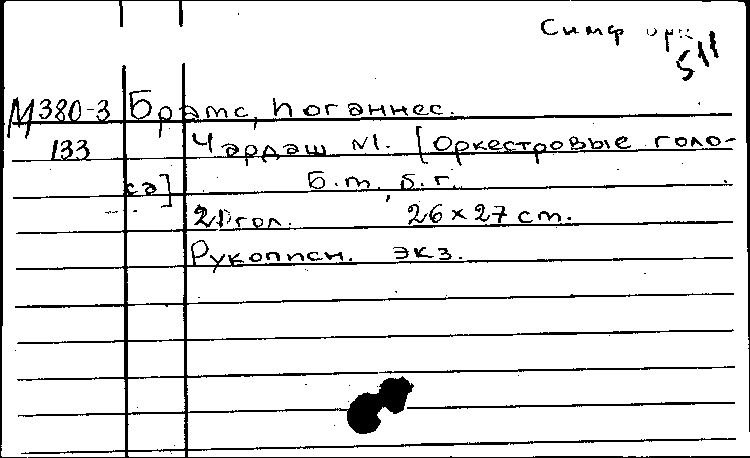 Симф орк
511
М380-3 Брамс, Иоганнес.
133 Чардаш №1. [Оркестровые голо-
са] б.т., б.г.
21 гол. 26 × 27 cm.
Рукописн. экз.